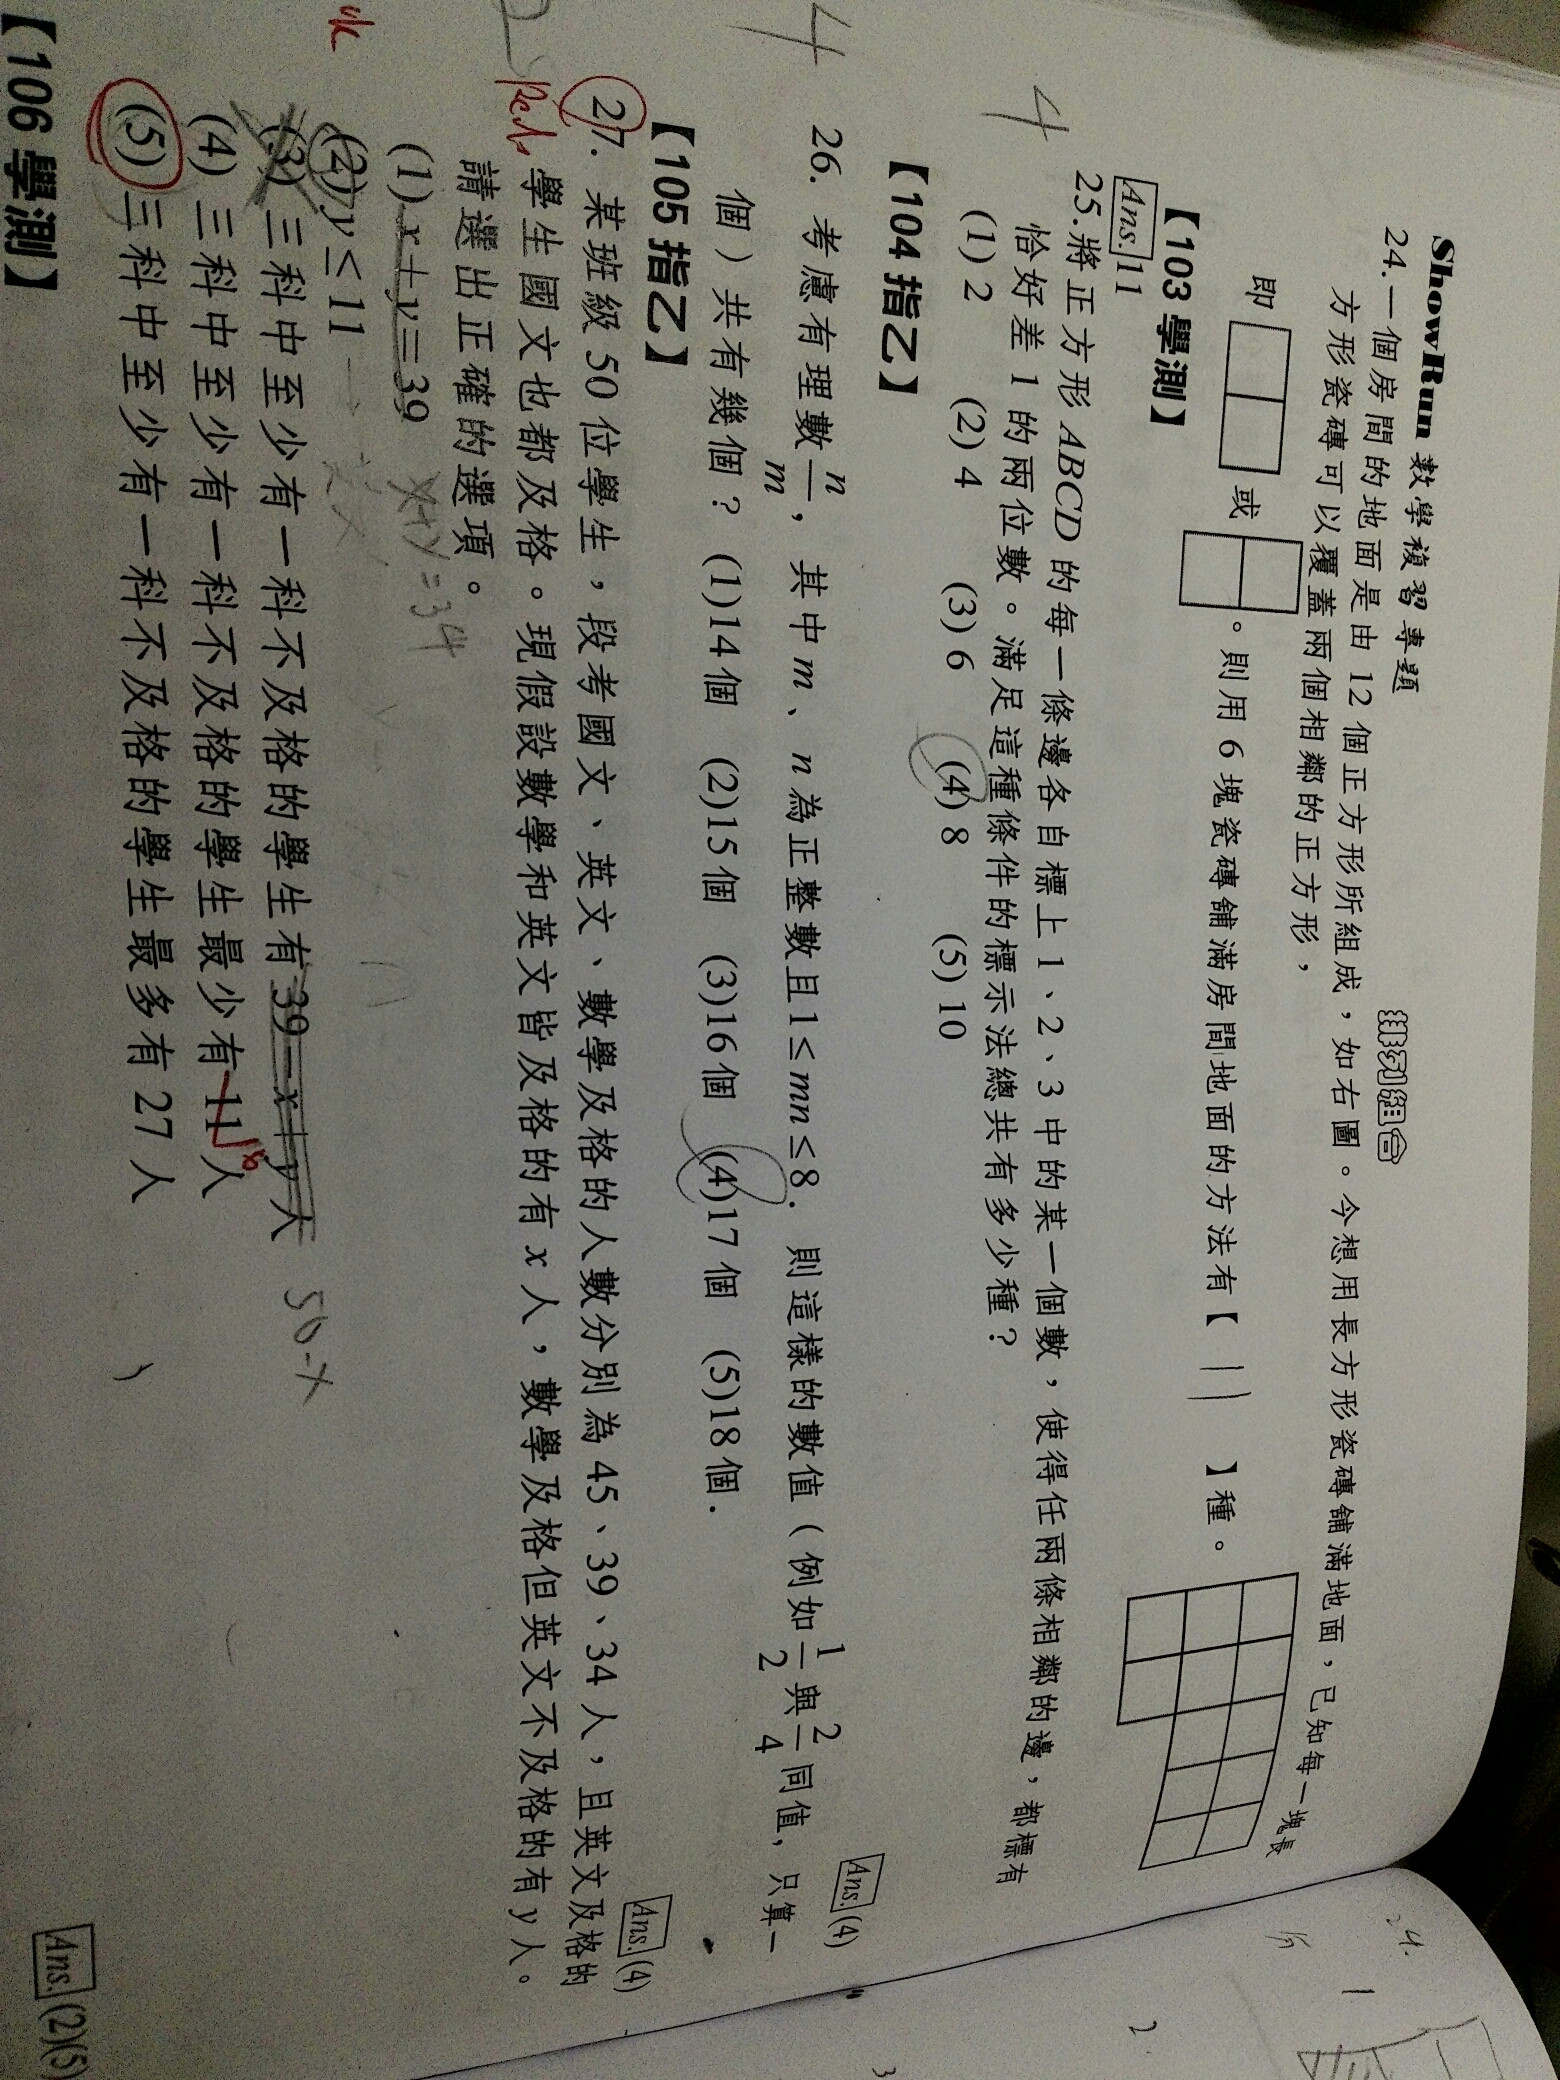 ShowRun 數學複習專題
排列組合
24.一個房間的地面是由 12 個正方形所組成，如右圖。今想用長方形瓷磚舖滿地面，已知每一塊長
方形瓷磚可以覆蓋兩個相鄰的正方形，
即 或 。則用 6 塊瓷磚舖滿房間地面的方法有【 11 】種。
【103 學測】
Ans. 11
4
25.將正方形 ABCD 的每一條邊各自標上 1、2、3 中的某一個數，使得任兩條相鄰的邊，都標有
恰好差 1 的兩位數。滿足這種條件的標示法總共有多少種？
(1) 2 (2) 4 (3) 6 (4) 8 (5) 10
【104 指乙】
Ans. (4)
4
26. 考慮有理數 n/m，其中 m、n 為正整數且 1 ≤ mn ≤ 8． 則這樣的數值（例如 1/2 與 2/4 同值，只算一
個）共有幾個？ (1)14 個 (2)15 個 (3)16 個 (4)17 個 (5)18 個．
【105 指乙】
Ans. (4)
27. 某班級 50 位學生，段考國文、英文、數學及格的人數分別為 45、39、34 人，且英文及格的
學生國文也都及格。現假設數學和英文皆及格的有 x 人，數學及格但英文不及格的有 y 人。
請選出正確的選項。
(1) x + y = 39 x+y=34
(2) y ≤ 11
(3) 三科中至少有一科不及格的學生有 39 − x + y 人 50-x
(4) 三科中至少有一科不及格的學生最少有 11 人 16
(5) 三科中至少有一科不及格的學生最多有 27 人
【106 學測】
Ans. (2)(5)
24.
1
2
3